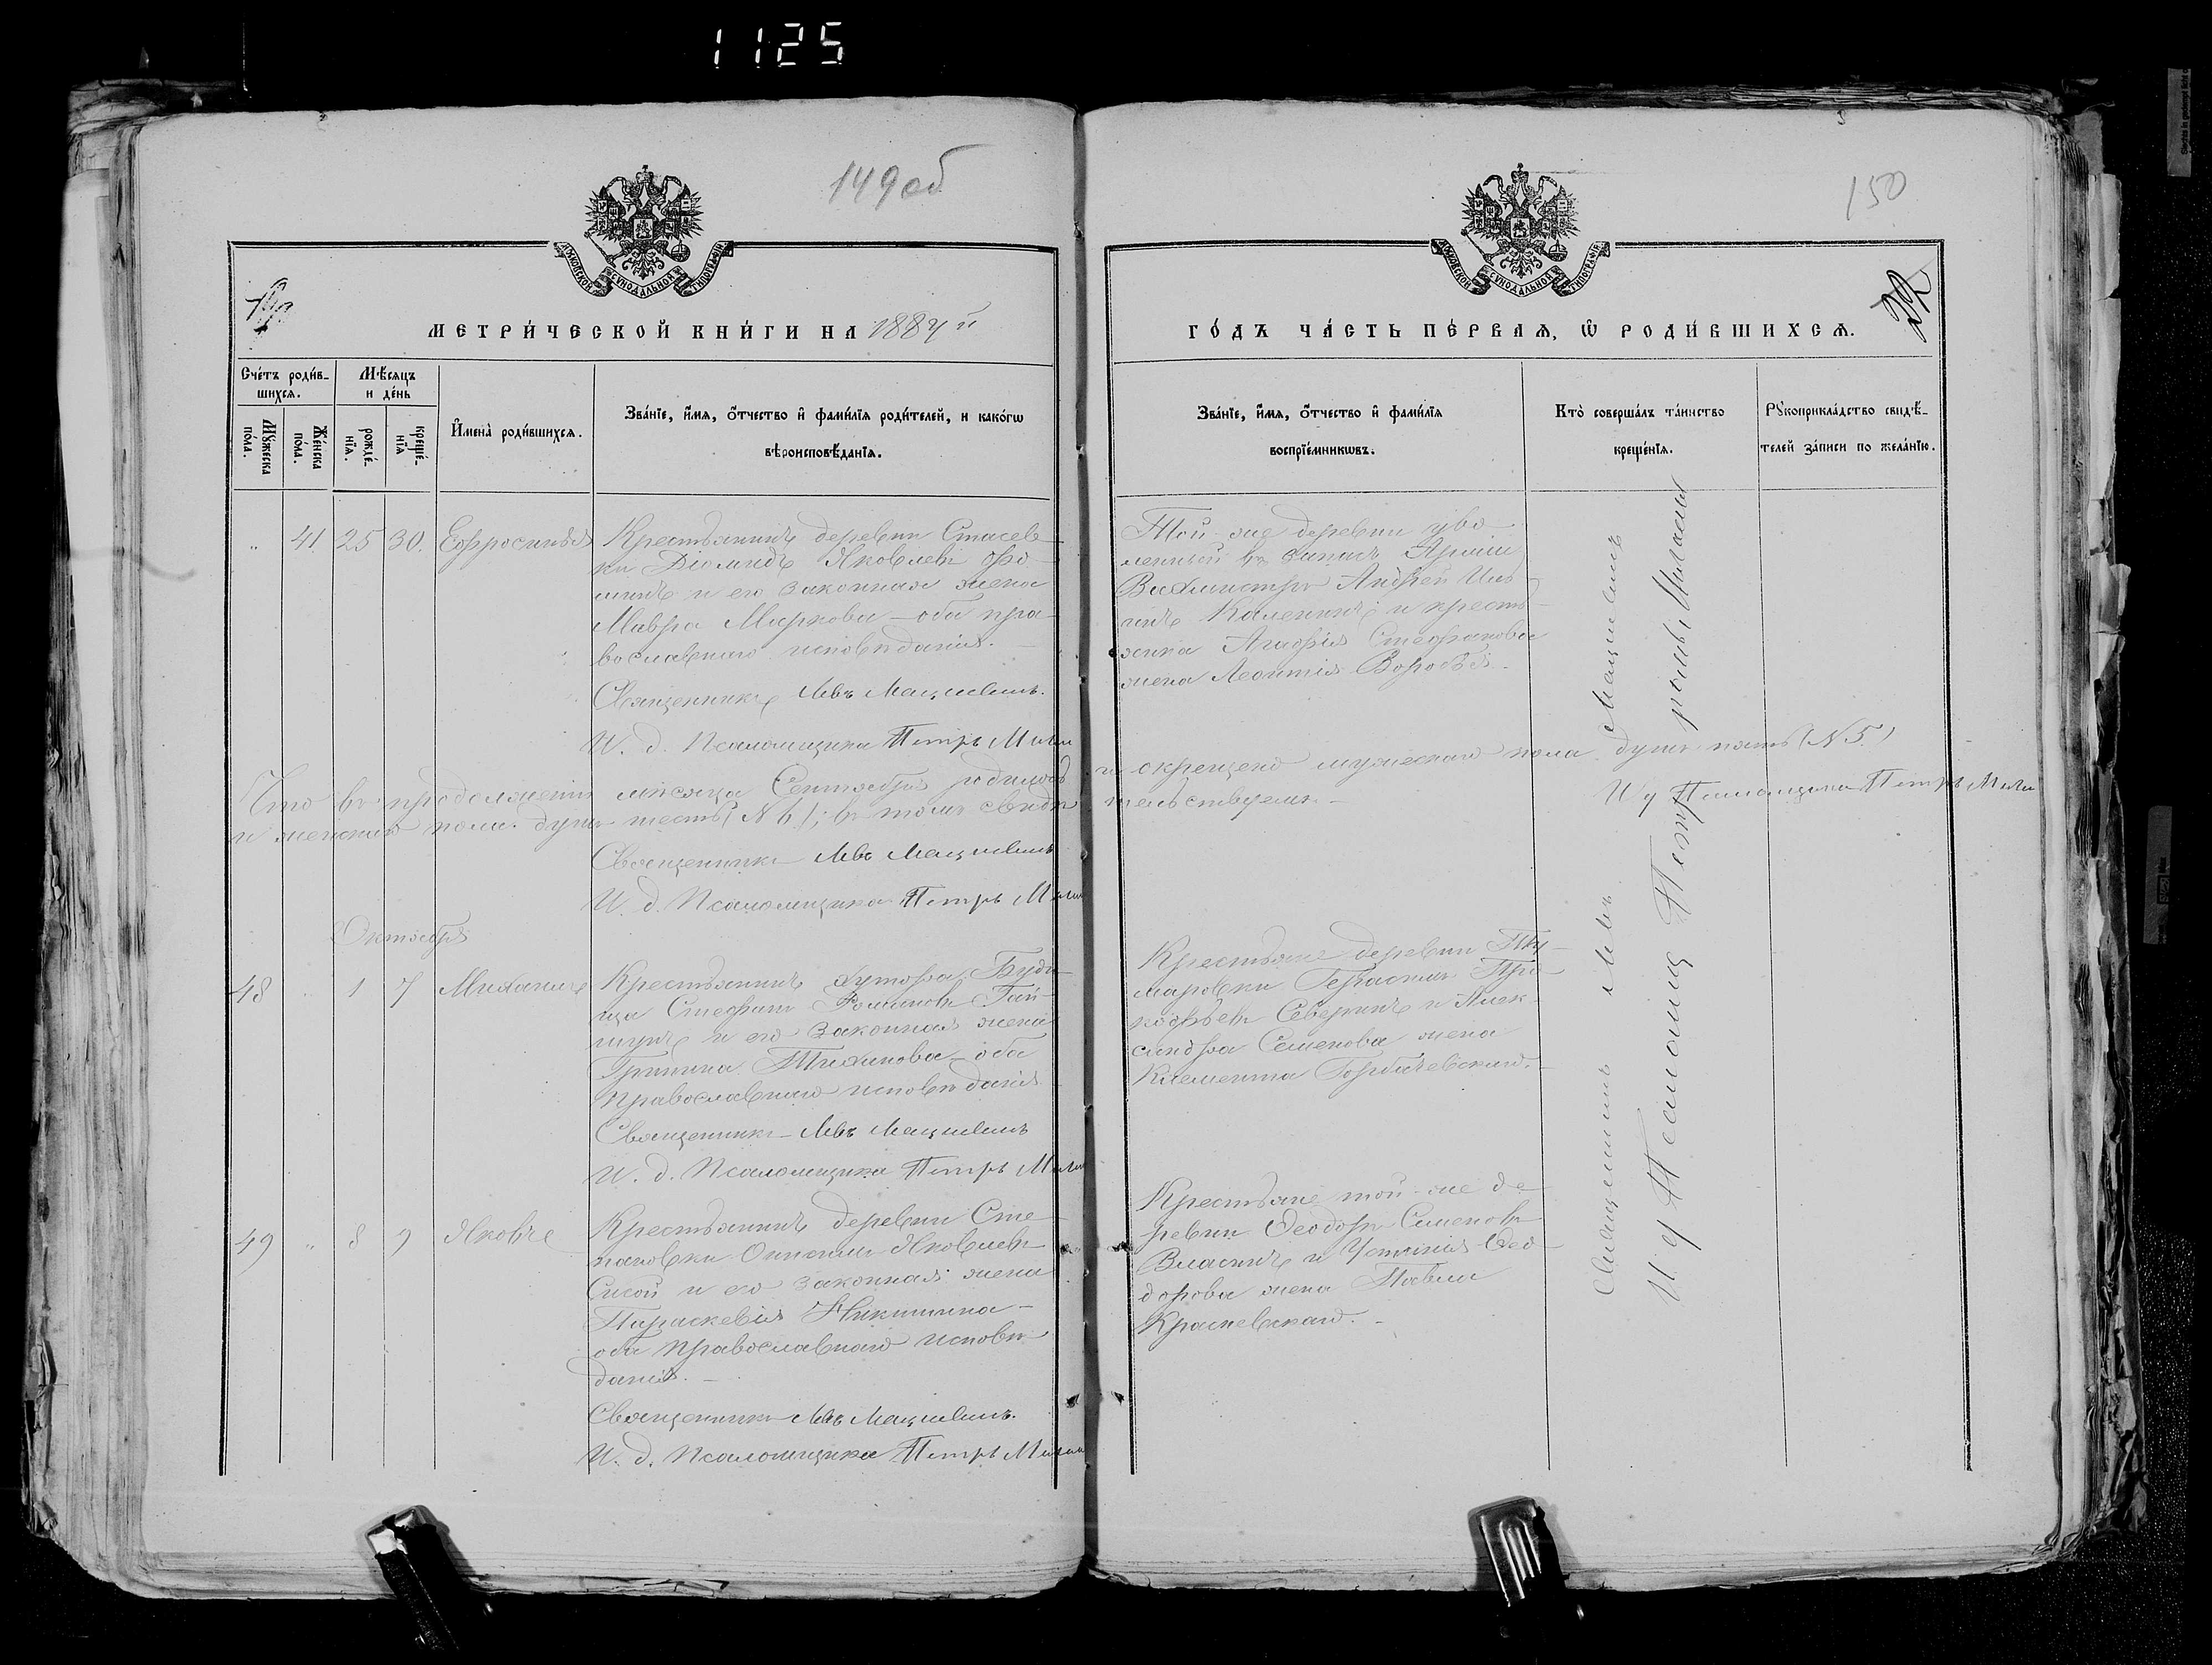 1125
149об
150
МОСКОВСКОЙ СѴНОДАЛЬНОЙ ТИПОГРАФІИ
МОСКОВСКОЙ СѴНОДАЛЬНОЙ ТИПОГРАФІИ
МЕТРИ́ЧЕСКОЙ КНИ́ГИ НА 1884 й
ГО́ДЪ ЧА́СТЬ ПЕ́РВАЯ, Ѡ РОДИ́ВШИХСЯ.
Сче́тъ роди́в-
шихся.
Мѣ́сяцъ
и де́нь
Мꙋ́жеска
по́ла.
Же́нска
по́ла.
рожде́-
нїя.
креще́-
нїя
И҆мена̀ роди́вшихся.
Зва́нїе, и҆́мя, о҆́тчество и҆ фами́лїя роди́телей, и како́гѡ
вѣроисповѣ́данїя.
Зва́нїе, и҆́мя, о҆́тчество и҆ фами́лїя
воспрїе́мникѡвъ.
Кто̀ соверша́лъ та́инство
креще́нїя.
Рꙋкоприкла́дство свидѣ́-
телей за́писи по жела́нїю.
" 41 25 30. Ефросинья
Крестьянинъ деревни Стасев-
ки Діомидъ Яковлевъ
и его законная жена
Мавра Маркова – оба пра-
вославнаго исповѣданія. –
Священникъ Левъ
И. д. Псаломщика Петръ
Той-же деревни уво-
ленный въ запасъ Арміи
Вахмистръ Андрей Иль-
инъ Каленикъ и кресть-
янка Агафія Стефанова
жена Леонтія Воробья. –
Что въ продолженіи мѣсяца Сентября родилось и окрещено мужескаго пола душъ пять (№ 5.)
и женскаго пола душъ шесть (№ 6.); въ томъ свидѣтельствуемъ. –
Священникъ Левъ
И. д. Псаломщика Петръ
И д Псаломщика Петръ
Октября
48 " 1 7 Михаилъ
Крестьянинъ хутора Буди-
ща Стефанъ Романовъ Гай-
и его законная жена
Тихонова – оба
православнаго исповѣданія
Священникъ Левъ
И. д. Псаломщика Петръ
Крестьяне деревни
Герасимъ
Северинъ и Алек-
сандра Семенова жена
Климента Горбачевскаго. –
49 " 8 9 Яковъ
Крестьянинъ деревни Сте-
пановки Яковлевъ
и его законная жена
Параскевія Никитина –
оба православнаго исповѣ-
данія. –
Священникъ Левъ
И. д. Псаломщика Петръ
Крестьяне той-же де-
ревни Ѳеодоръ Семеновъ
Власикъ и Устинія Ѳео-
дорова жена Павла
Священникъ Левъ
И. д Псаломщ Петръ